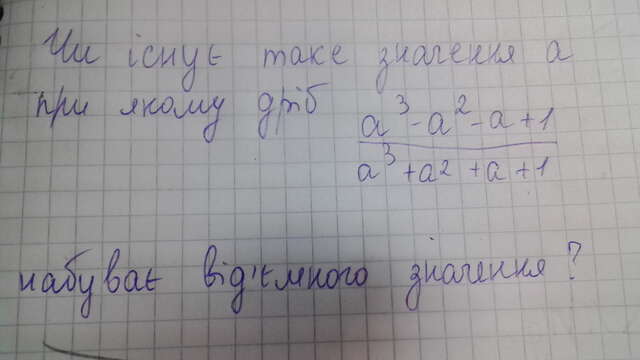 Чи існує таке значення a
при якому дріб a³-a²-a+1
a³+a²+a+1
набуває від'ємного значення?